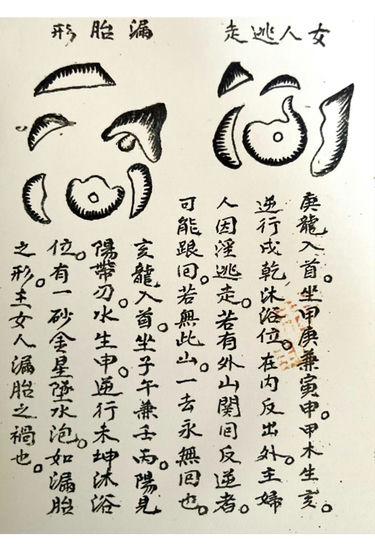 女人逃走
庚龍入首。坐甲庚兼寅申。甲木生亥。
逆行戌乾沐浴位。在內反出外。主婦
人因淫逃走。若有外山関囘反逆者。
可能跟囘。若無此山。一去永無囘也。
漏胎形
亥龍入首。坐子午兼壬丙。陽見
陽帶刃。水生申。逆行未坤沐浴
位。有一砂金星墜水泡。如漏胎
之形。主女人漏胎之禍也。